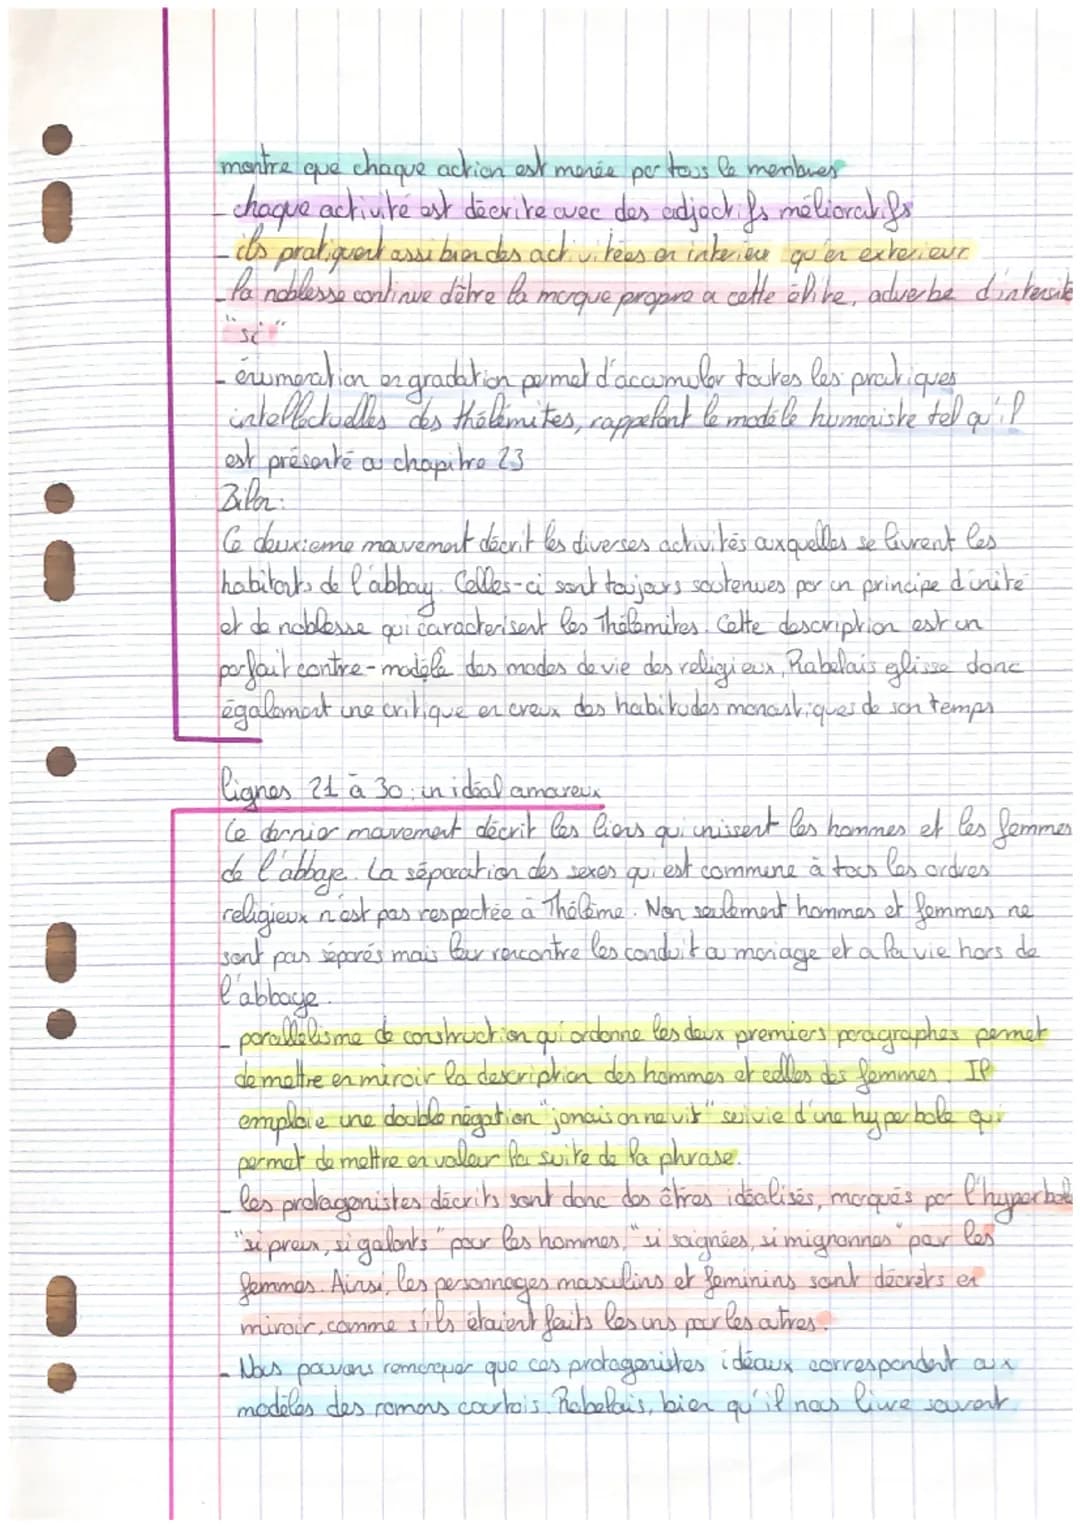 montre que chaque action est menée par tous le membres
- chaque activité est décrite avec des adjectifs mélioratifs
- ils pratiquent assi bien des activitées en interieu qu'en exterieur
- la noblesse continue d'être la marque propre a cette élite, adverbe d'intensité
"si"
- énumeration en gradation permet d'accumuler toutes les pratiques
intellectuelles des thélémites, rappelant le modèle humaniste tel qu'il
est présenté au chapitre 23
Bilan:
Ce deuxieme mouvement décrit les diverses activités auxquelles se livrent les
habitants de l'abbay. Celles-ci sont toujours soutenues par un principe d'unité
et de noblesse qui caracterisent les Thélemites. Cette description est un
parfait contre-modèle des modes de vie des religieux, Rabelais glisse donc
également une critique en creux des habitudes monastiques de son temps
lignes 21 à 30: un idéal amoureux
Ce dernier mouvement décrit les liens qui unissent les hommes et les femmes
de l'abbaye. La séparation des sexes qui est commune à tous les ordres
religieux n'est pas respectée à Thélème. Non seulement hommes et femmes ne
sont pas séparés mais leur rencontre les conduit au mariage et a la vie hors de
l'abbaye.
- parallélisme de construction qui ordonne les deux premiers paragraphes permet
de mettre en miroir la description des hommes et celles des femmes. Il
emploie une double négation "jamais on ne vit" suivie d'une hyperbole qui
permet de mettre en valeur la suite de la phrase.
- les protagonistes décrits sont donc des êtres idéalisés, marqués par l'hyperbole
"si preux, si galants" pour les hommes, "si soignées, si mignonnes" pour les
femmes. Ainsi, les personnages masculins et feminins sont décrets en
miroir, comme s'ils étaient faits les uns pour les autres.
- Nous pouvons remarquer que ces protagonistes idéaux correspondent aux
modèles des romans courtois. Rabelais, bien qu'il nous livre souvent